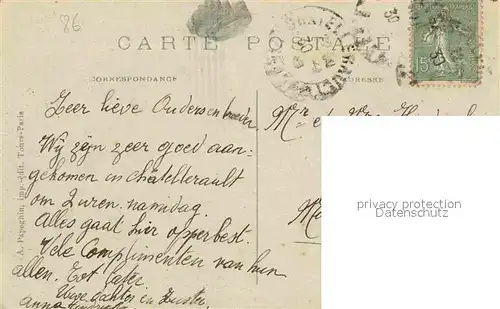 86
CARTE POSTALE
CORRESPONDANCE
ADRESSE
15
Zeer lieve Ouders en broeder,
Wij zijn zeer goed aan-
gekomen in châtellerault
om 2 uren. namidag.
Alles gaat hier opperbest.
Vele Complimenten van hun
allen. Tot later.
Uwe dochter en Zuster
anna
Mr et
A. Papeghin, imp.-édit. Tours-Paris
privacy protection
Datenschutz